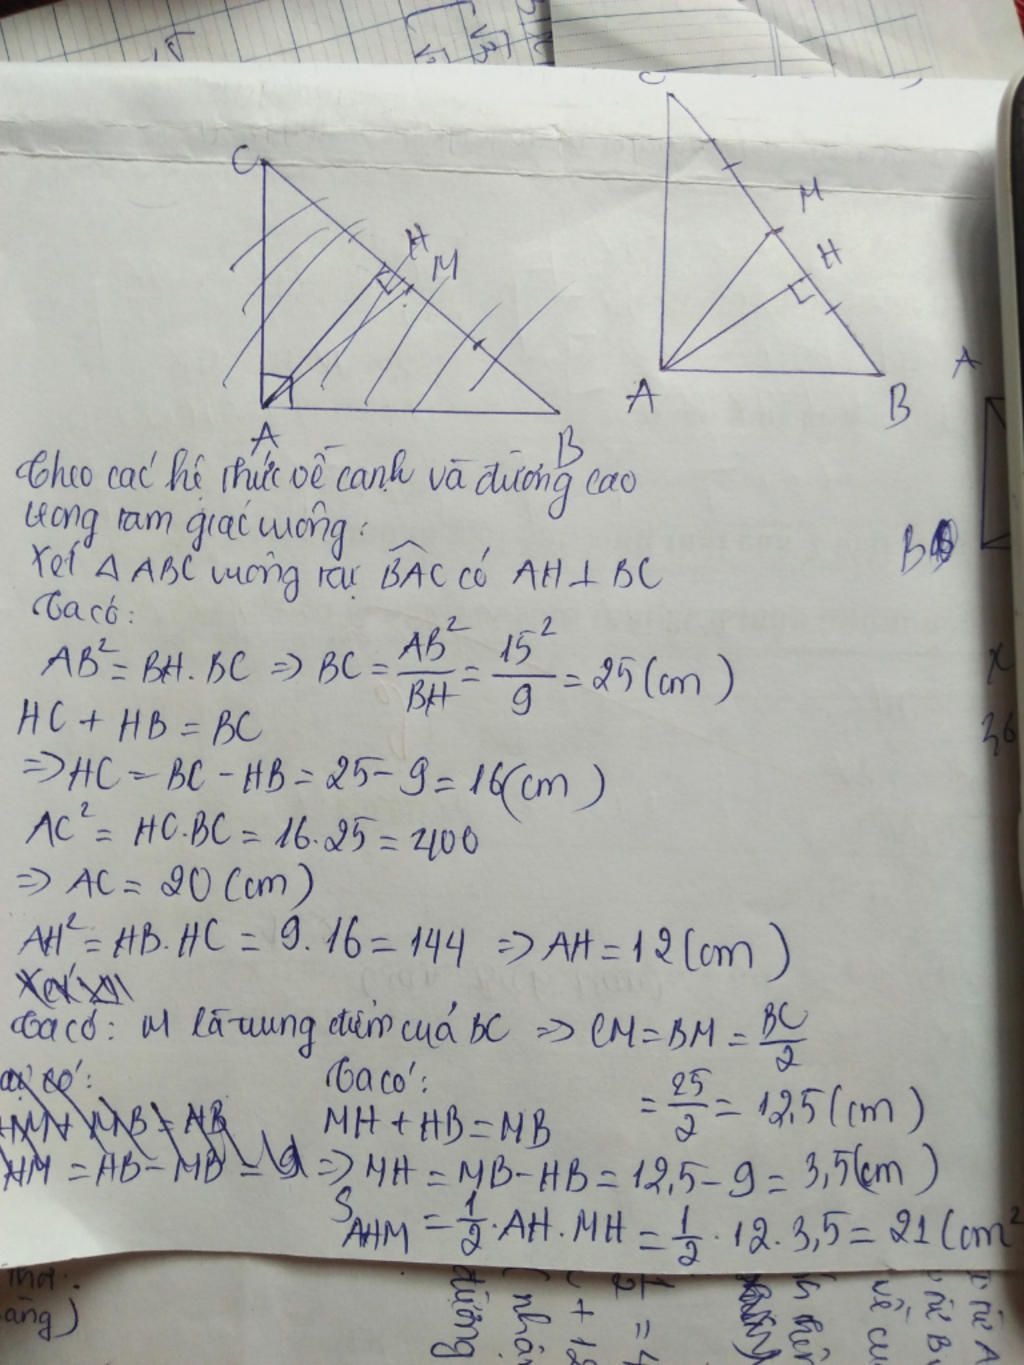 C
H
M
A
B
C
M
H
A
B
A
B
Theo các hệ thức về cạnh và đường cao
trong tam giác vuông:
Xét △ ABC vuông tại BAC có AH ⊥ BC
Ta có:
AB² = BH. BC => BC = AB²/BH = 15²/9 = 25 (cm)
HC + HB = BC
=> HC = BC - HB = 25 - 9 = 16 (cm)
AC² = HC.BC = 16.25 = 400
=> AC = 20 (cm)
AH² = HB. HC = 9. 16 = 144 => AH = 12 (cm)
Ta có: M là trung điểm của BC => CM = BM = BC/2
= 25/2 = 12,5 (cm)
Ta có:
MH + HB = MB
HM = HB - MB = 9
=> MH = MB - HB = 12,5 - 9 = 3,5 (cm)
S AHM = 1/2 . AH. MH = 1/2 . 12. 3,5 = 21 (cm²
x
36
áng)
đường